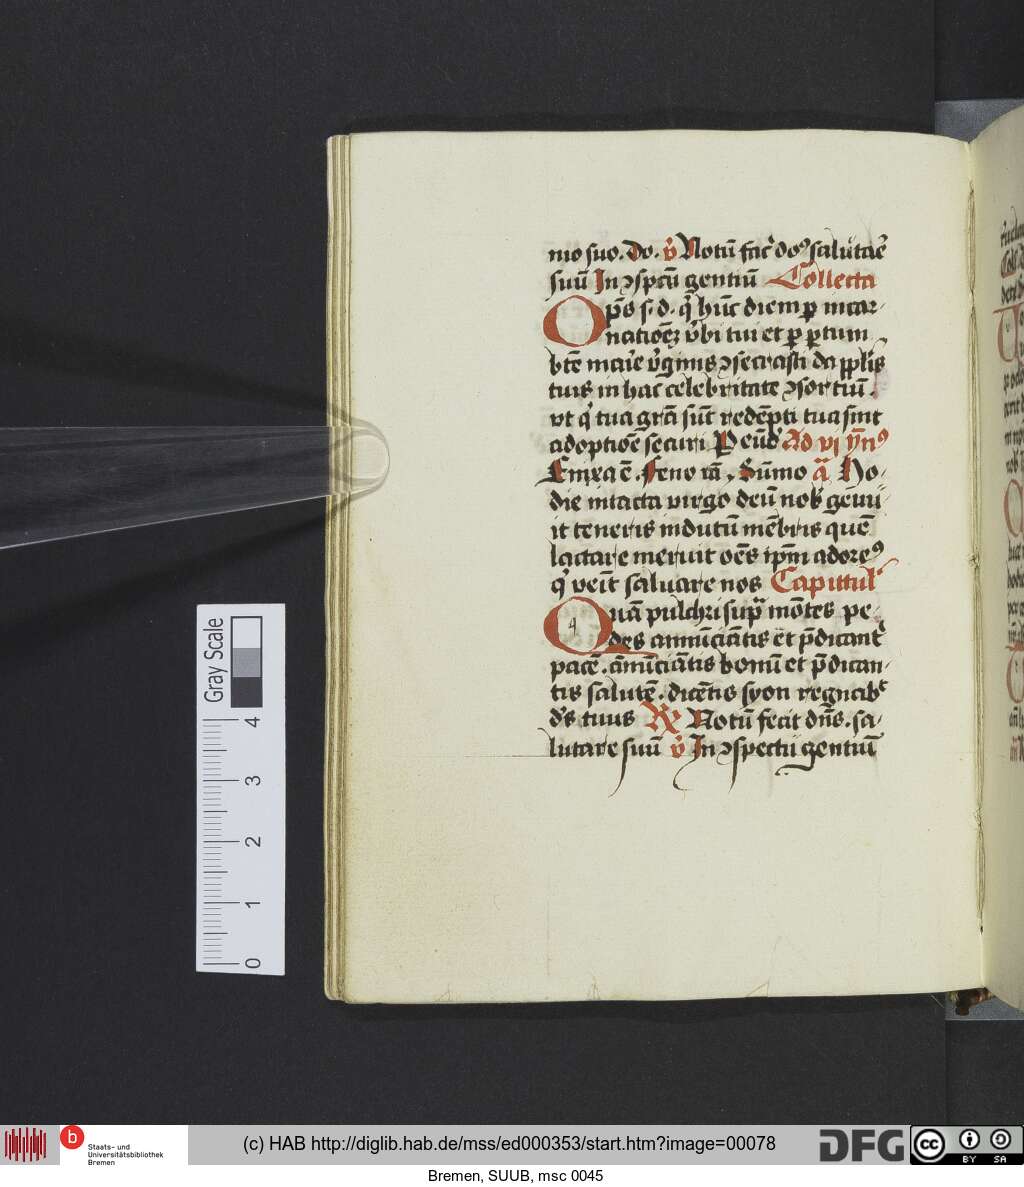 mo suo. Do. v̾ Notū fac̄ do⁹ salutaē
suū In ꝯspc̄tū gentiū Collecta
Op̄s s. d. q̄ hūc diem ꝑ incar-
natiōeꝫ v̾bi tui et ꝑ ꝑtum
btē marīe v̾ginis ꝯsecrasti da ppl̄is
tuis in hac celebritate ꝯsortiū.
vt q̄ tua grā sūt redēpti tua sint
adoptiōe securi P eūd̄ Ad vj yn̄⁹
Enixa ē. Feno ia. Sūmo ā Ho-
die intacta virgo deū nob̄ genu-
it teneris indutū mēbris quē
lactare meruit oēs ip̄m adore⁹
q̄ veīt saluare nos Capittul̄
Quā pulchri sup̄ mōtes pe-
des annūciātis et p̄dicant̄
pacē. ānūciātis bonū et p̄dican-
tis salutē. dicētis syon regnabᵗ
ds̄ tuus R̾ Notū fecit dn̄s. sa-
lutare suū v̾ In ꝯspectu gentiū
Gray Scale
4
3
2
1
0
b Staats- und
Universitätsbibliothek
Bremen
(c) HAB http://diglib.hab.de/mss/ed000353/start.htm?image=00078
DFG
cc BY SA
Bremen, SUUB, msc 0045